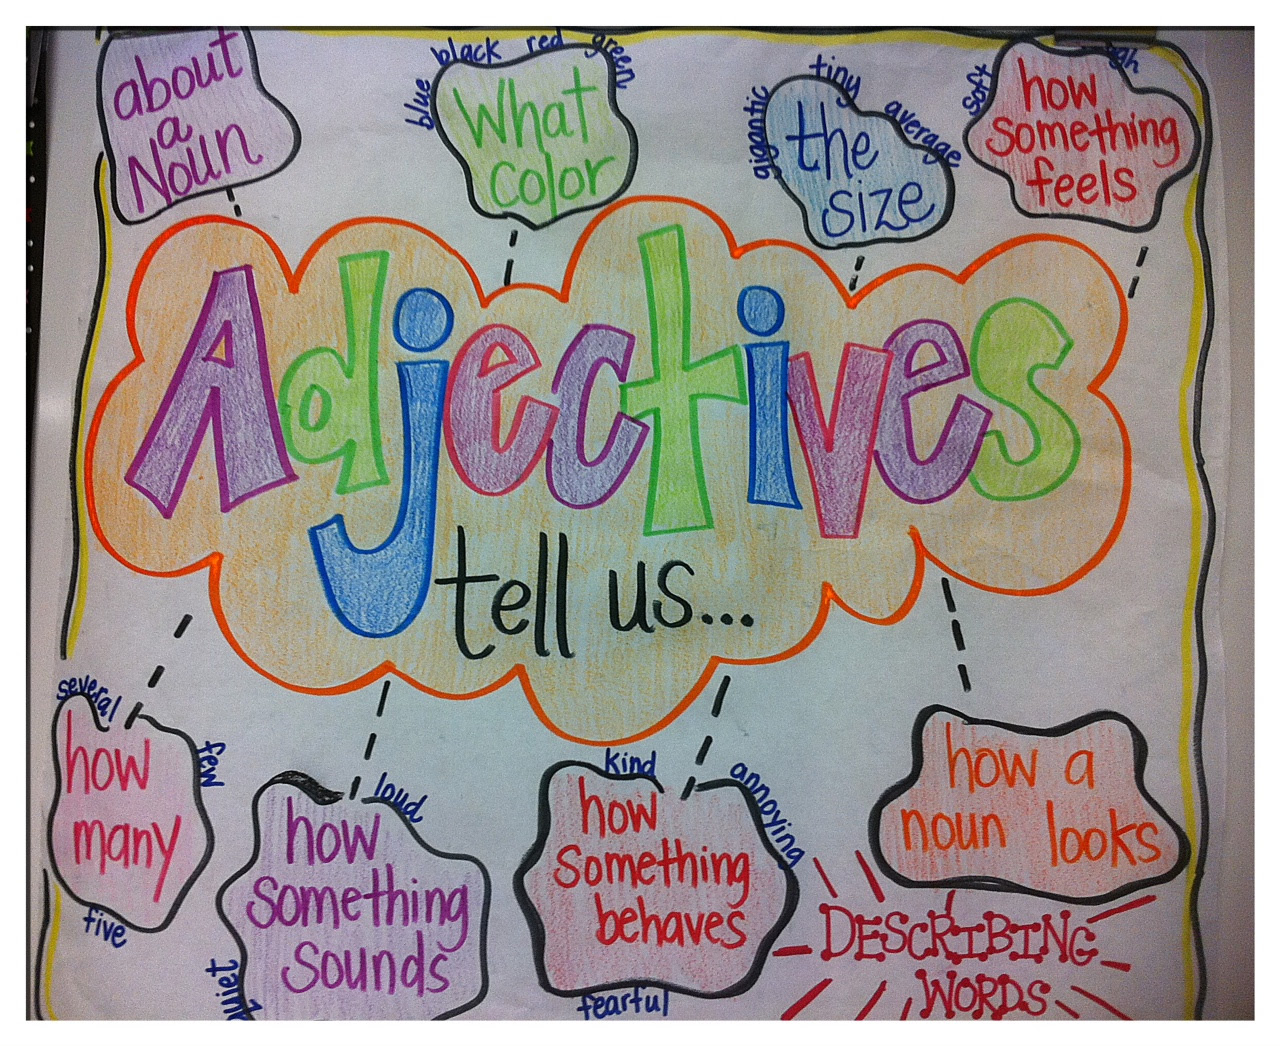 about
a
Noun
blue black red green
What
color
gigantic tiny average
the
size
soft
how
something
feels
Adjectives
tell us...
several
few
how
many
five
loud
how
something
sounds
quiet
kind
annoying
how
something
behaves
fearful
how a
noun looks
DESCRIBING
WORDS